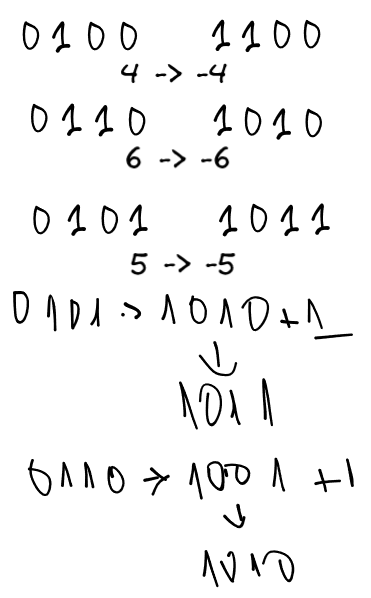 0100 1100
4 -> -4
0110 1010
6 -> -6
0101 1011
5 -> -5
0101 -> 1010+1
↓
1011
0110 → 1001 +1
↓
1010